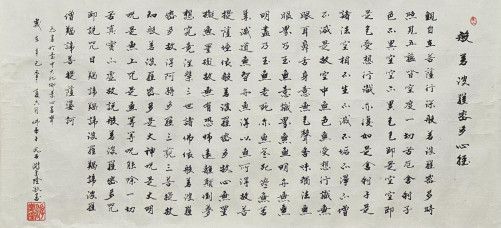 般若波羅密多心經
觀自在菩薩行深般若波羅密多時
照見五蘊皆空度一切苦厄舍利子
色不異空空不異色色即是空空即
是色受想行識亦復如是舍利子是
諸法空相不生不滅不垢不淨不增
不減是故空中無色無受想行識無
眼耳鼻舌身意無色聲香味觸法無
眼界乃至無意識界無無明亦無無
明盡乃至無老死亦無老死盡無苦
集滅道無智亦無得以無所得故菩
提薩埵依般若波羅密多故心無罣
礙無罣礙故無有恐怖遠離顛倒夢
想究竟涅槃三世諸佛依般若波羅
密多故得阿耨多羅三藐三菩提故
知般若波羅密多是大神咒是大明
咒是無上咒是無等等咒能除一切
苦真實不虛故說般若波羅密多咒
即說咒曰揭諦揭諦波羅揭諦波羅
僧揭諦菩提薩婆訶